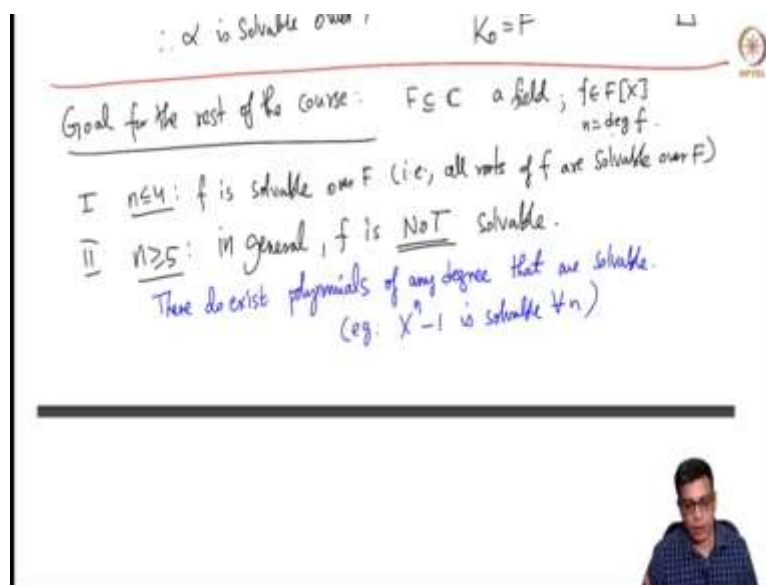 ∴ α is Solvable over
K₀ = F
Goal for the rest of the course: F ⊆ C a field; f ∈ F[X]
n = deg f.
I n≤4: f is solvable over F (i.e., all roots of f are solvable over F)
II n≥5: in general, f is NOT solvable.
There do exist polynomials of any degree that are solvable.
(eg: Xⁿ-1 is solvable ∀n)
NPTEL